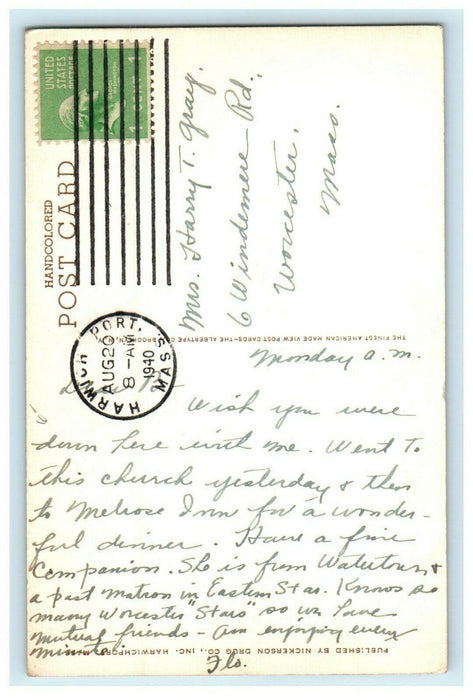 UNITED
STATES
POSTAGE
1 CENT 1
HANDCOLORED
POST CARD
HARWICH PORT, MASS.
AUG 26
8-AM
1940
Mrs. Harry T. Gray.
6 Windemere Rd.
Worcester.
Mass.
THE FINEST AMERICAN MADE VIEW POST CARDS—THE ALBERTYPE CO., BROOKLYN, N.Y.
Monday a.m.
Wish you were
down here with me. Went to
this church yesterday & then
to Melrose Inn for a wonder-
ful dinner. Have a fine
companion. She is from Watertown &
a past matron in Eastern Star. Knows so
many Worcester "Stars" so we have
mutual friends - Am enjoying every
minute.
Flo.
PUBLISHED BY NICKERSON DRUG CO., INC. HARWICHPORT, MASS.